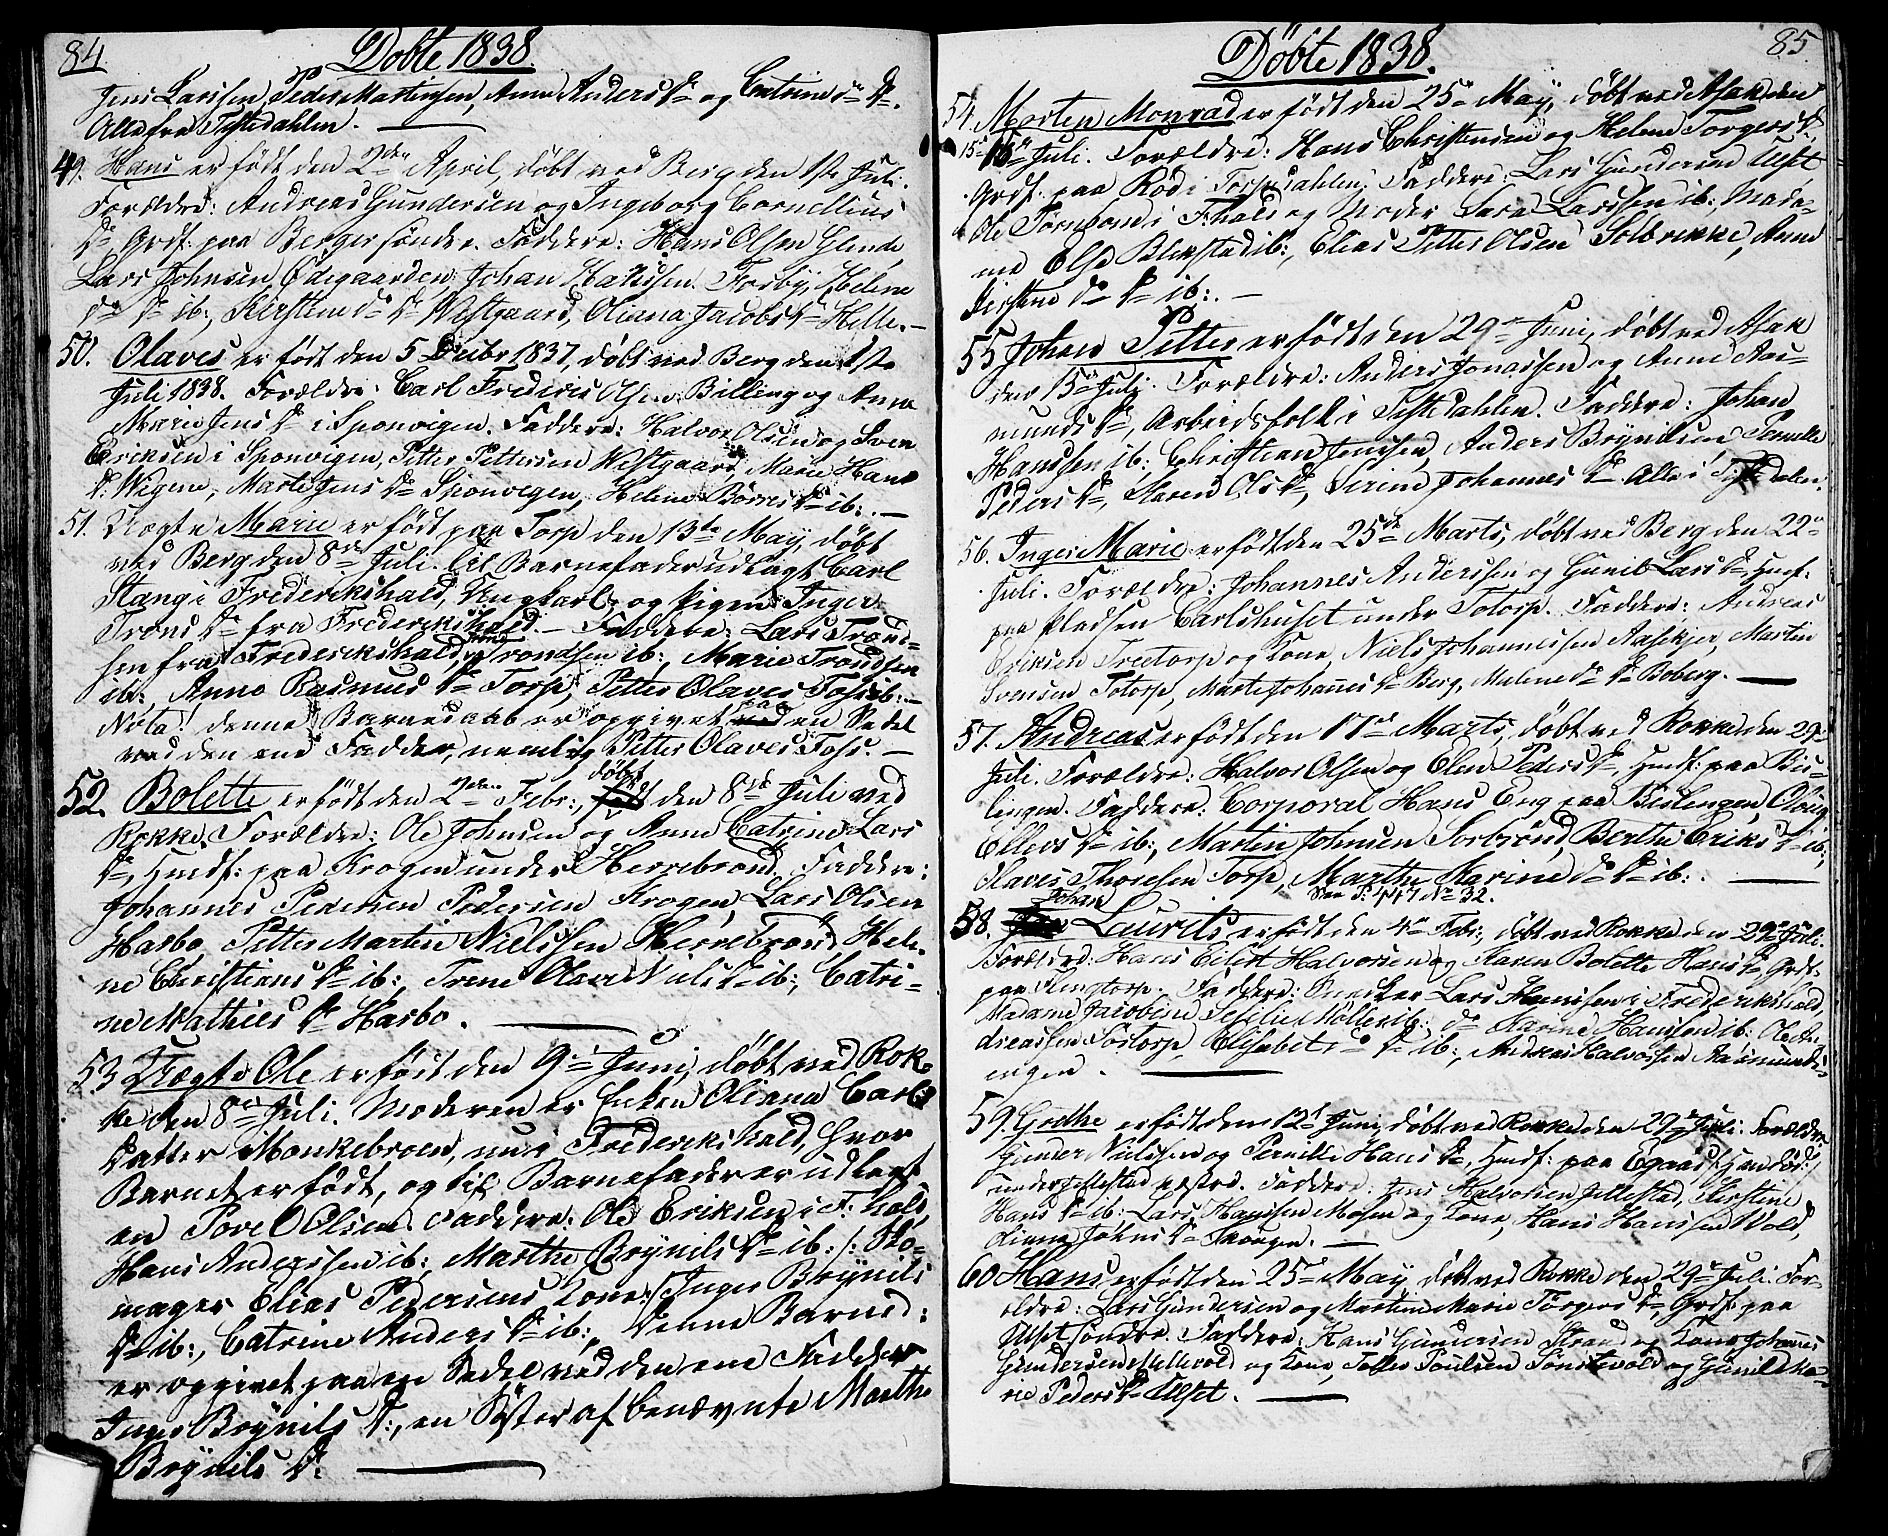 84. Døbte 1838.
Jens Larssen, Peder Martinsen, Anne Anders Dr og Catrine do Dr.
Alle fra Tistedahlen.
49. Hans er født den 2den April, døbt ved Berg den 1ste Juli.
Forældre: Andreas Gundersen og Ingeborg Cornellius
Dr, Grdf: paa Berger søndre. Faddere: Hans Olsen Glende,
Lars Johnsen Ødegaarden, Johan Hansen Torby, Helene
do Dr ib:, Kirstine do Dr Westgaard, Oliana Jacobs Dr Helle.
50. Olaves er født den 5 Decbr 1837, døbt ved Berg den 1ste
Juli 1838. Forældre: Carl Frederic Olsen Billing og Anne
Marie Jens Dr i Sponvigen. Faddere: Halvor Olsen og Sven
Eriksen i Sponvigen, Petter Pettersen Westgaard, Marie Hans
Dr Wigene, Marte Jens Dr Sponvegen, Helene Børres Dr ib:.
51. Uægte Marie er født paa Torp den 13de May, døbt
ved Berg den 8de Juli. Til Barnefader udlagt Carl
Stang i Frederikshald, Ungkarl, og Pigen Inger
Trons Dr fra Frederikshald. Faddere: Lars Trond-
sen fra Frederikshald, Trondsen ib:, Marie Trondsen
ib:, Anne Rasmus Dr Torp, Petter Olaves Foss ib:.
Nota! denne Barnedaab er opgivet paa en Sedel
ved den ene Fadder, nemlig Petter Olaves Foss.
52. Bolette er født den 2den Febr:, døbt den 8de Juli ved
Rokke. Forældre: Ole Johnsen og Anne Catrine Lars
Dr, Hmdf: paa Krogen under Herrebrønd. Faddere:
Johannes Pedersen Pedersen Krogen, Lars Olsen
Harbo, Petter Martin Nielssen Herrebrønd, Hele-
ne Christians Dr ib:, Trene Olave Niels Dr ib:, Catri-
ne Mathies Dr Harbo.
53 Uægte Ole er født den 9de Juni, døbt ved Rok-
ke den 8de Juli. Moderen er Enken Oliana Carls
Datter Monkebroen, nu i Frederikshald, hvor
Barnet er født, og til Barnefader er udlagt
en Povel Olsen. Faddere: Ole Eriksen i F:hald,
Hans Anderssen ib:, Marthe Brynils Dr ib: /: Sko-
mager Elias Pedersens Kone :/ Inger Brynils
Dr ib:, Catrine Anders Dr ib:, Denne Barned:
er opgivet paa en Sedel ved den ene Fadder
Inger Brynils D:, en Søster af benævnte Marthe
Brynils D:
85. Døbte 1838.
54. Morten Monrad er født den 25de May, døbt ved Asak den
15de Juli. Forældre: Hans Christensen og Helene Torgers Dr
Grdf: paa Rød i Torpedahlen. Faddere: Lars Gundersen Ulset
Ole Tørnbom i F:hald og Moder Sara Larssen ib:, Mada-
me Else Blikstad ib:, Elias Petter Olsen Solbrekke, Anne
Kirstine do Dr ib:.
55 Johan Petter er født den 29de Juni, døbt ved Asak
den 15de Juli. Forældre: Anders Jonassen og Anne Aas-
munds Dr, Arbeidsfolk i Tistedahlen. Faddere: Johan
Hanssen ib:, Christian Jenssen, Anders Brynilsen, Pernelle
Peders Dr, Karen Ols Dr, Sirine Johannes Dr Alle i Tistedalen.
56. Inger Marie er født den 25de Marts, døbt ved Berg den 22de
Juli. Forældre: Johannes Anderssen og Gunil Lars Dr, Husf:
paa Pladsen Carlshuset under Totorp. Faddere: Andreas
Eriksen Treetorp og Kone, Niels Johannessen Aasekjer, Martin
Svensen Totorp, Marte Johanes Dr Berg, Malene do Dr Boberg.
57. Andreas er født den 17de Marts, døbt ved Rokke den 29de
Juli. Forældre: Halvor Olsen og Elen Peders Dr, Hmdf: paa Bis-
lingen. Faddere: Corporal Hans Eng paa Bislingen,
Ellevs Dr ib:, Martin Johnsen Sorbrønd, Berthe Eriks Dr ib:,
Olaves Thoresen Torp, Marthe Karine do Dr ib:.
See P: 147 No 32.
58. Johan Laurits er født den 4de Febr:, døbt ved Rokke den 29de Juli.
Forældre: Hans Eilert Halvorsen og Karen Bolette Hans Dr, Grdf:
paa Klingtorp. Faddere: Snecker Lars Hanssen i Frederikshald,
Madame Jacobine Møller ib:, do Karine Hanssen ib:, Ole An-
dreassen Tostorp, Elisabet do Dr ib:, Andreas Halvorsen Aasmunds-
engen.
59. Grethe er født den 12te Juni, døbt ved Rokke den 29de Juli. Forældre
Gunder Nielssen og Pernille Hans Dr, Hmdf: paa
under Jellestad vestre. Faddere: Jens Halvorsen Jellestad, Kirstine
Hans Dr ib:, Lars Hanssen Mosen og Kone, Hans Hanssen Wold,
Liana Johns Dr Skougen.
60 Hans er født den 25de May, døbt ved Rokke den 29de Juli. For-
ældre: Lars Gundersen og Martine Marie Torgers Dr, Grdf: paa
Ulset søndre. Faddere: Hans Gundersen Strand og Kone, Johannes
Gundersen Millevold og Kone, Tolles Poulsen Tønstevold og Gunil Ma-
rie Peders Dr Ulset.